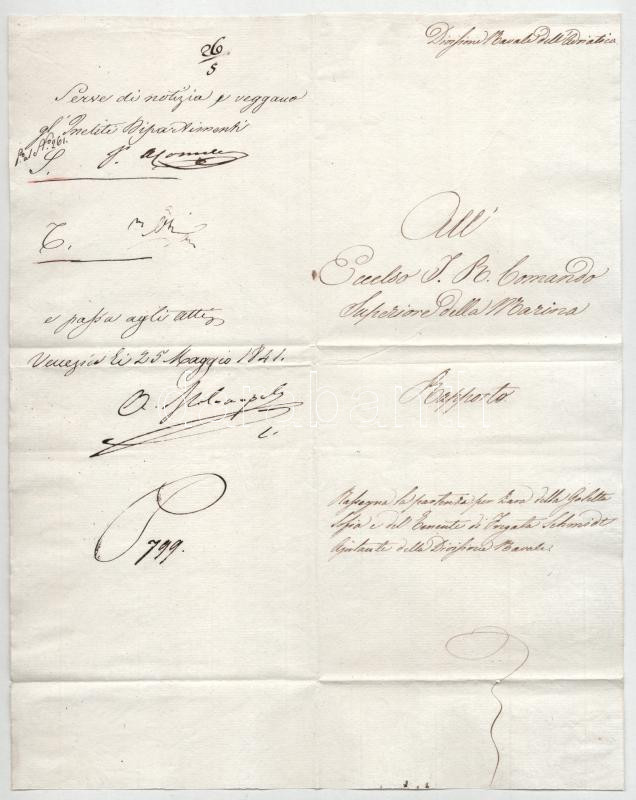 26
5
Serve di notizia e veggano
gl' Incliti Dipartimenti
S.
T.
e passa agli atti
Venezia li 25 Maggio 1841.
799.
Divisione Navale dell'Adriatico
All'
Eccelso I. R. Comando
Superiore della Marina
Rapporto
Rassegna la partenza per Zara della Goletta
Sofia e del Tenente di Fregata Schmidt
Ajutante della Divisione Navale.